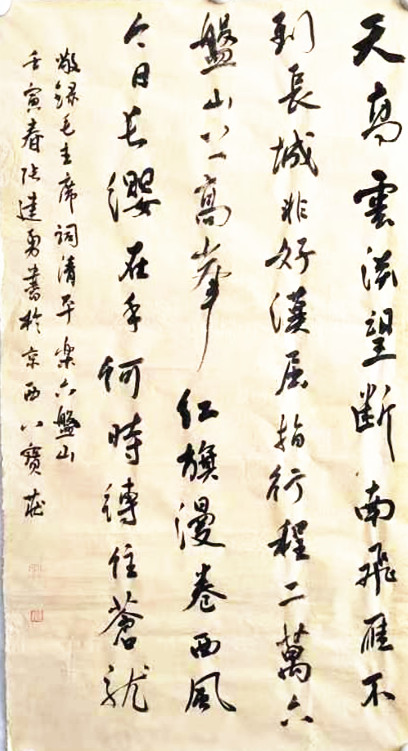 天高雲淡望断南飛雁不
到長城非好漢屈指行程二萬六
盤山上高峰红旗漫卷西風
今日长纓在手何時縛住蒼龙
敬録毛主席詞清平樂六盤山
壬寅春勇書於京西八寶莊